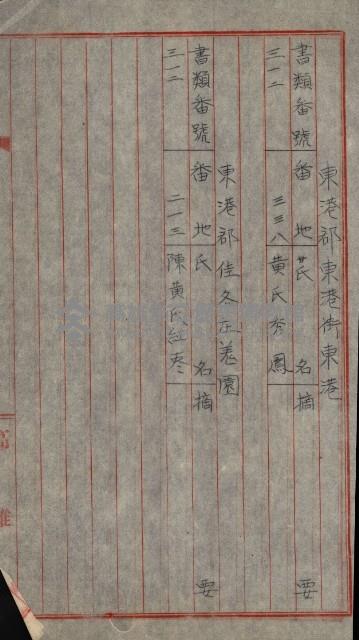 東港郡東港街東港
書類番號 番地 氏名 摘要
三一二 三三八 黃氏秀鳳
東港郡佳冬庄羗園
書類番號 番地 氏名 摘要
三一二 二一三 陳黃氏紅枣
高雄